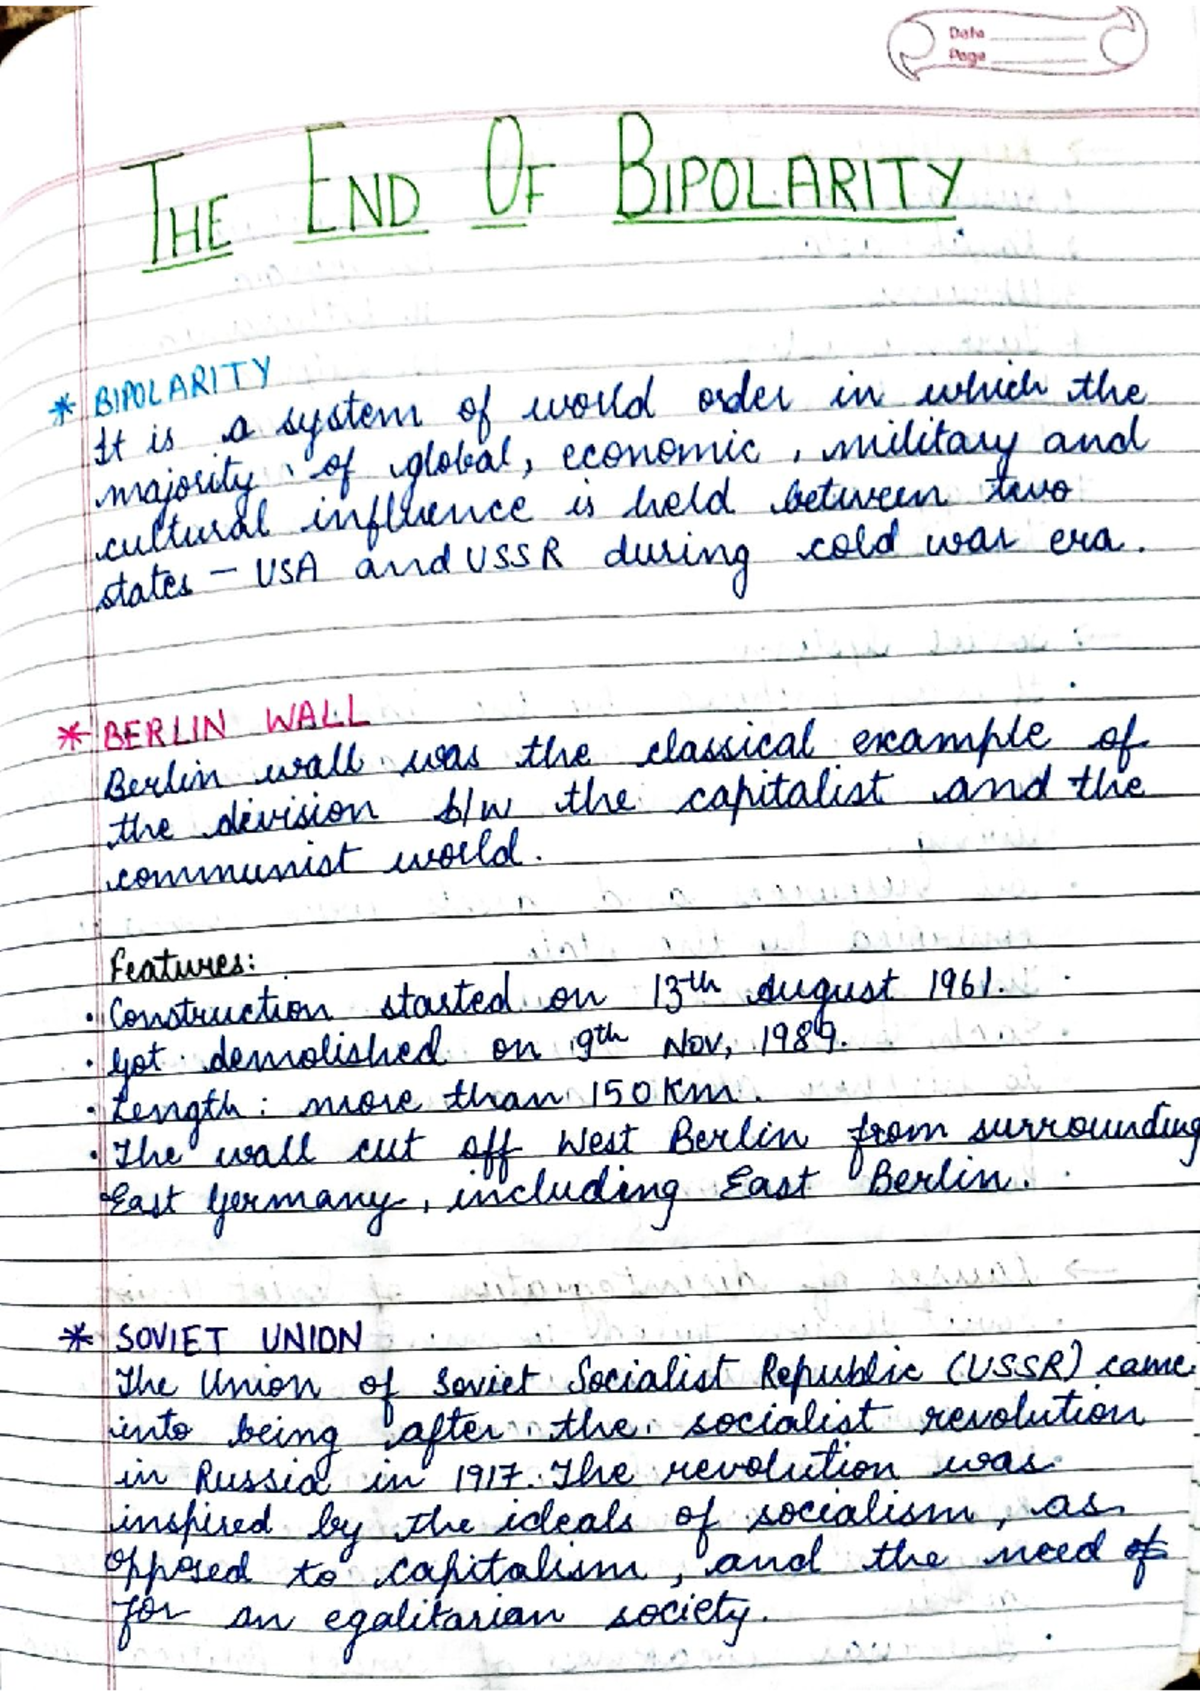 Date
Page
THE END OF BIPOLARITY
* BIPOLARITY
It is a system of world order in which the
majority of global, economic, military and
cultural influence is held between two
states - USA and USSR during cold war era.
* BERLIN WALL
Berlin wall was the classical example of
the division b/w the capitalist and the
communist world.
Features:
• Construction started on 13th August 1961.
• Got demolished on 9th Nov, 1989.
• Length: more than 150 Km.
• The wall cut off West Berlin from surrounding
East Germany, including East Berlin.
* SOVIET UNION
The Union of Soviet Socialist Republic (USSR) came
into being after the socialist revolution
in Russia in 1917. The revolution was
inspired by the ideals of socialism, as
opposed to capitalism, and the need of
for an egalitarian society.